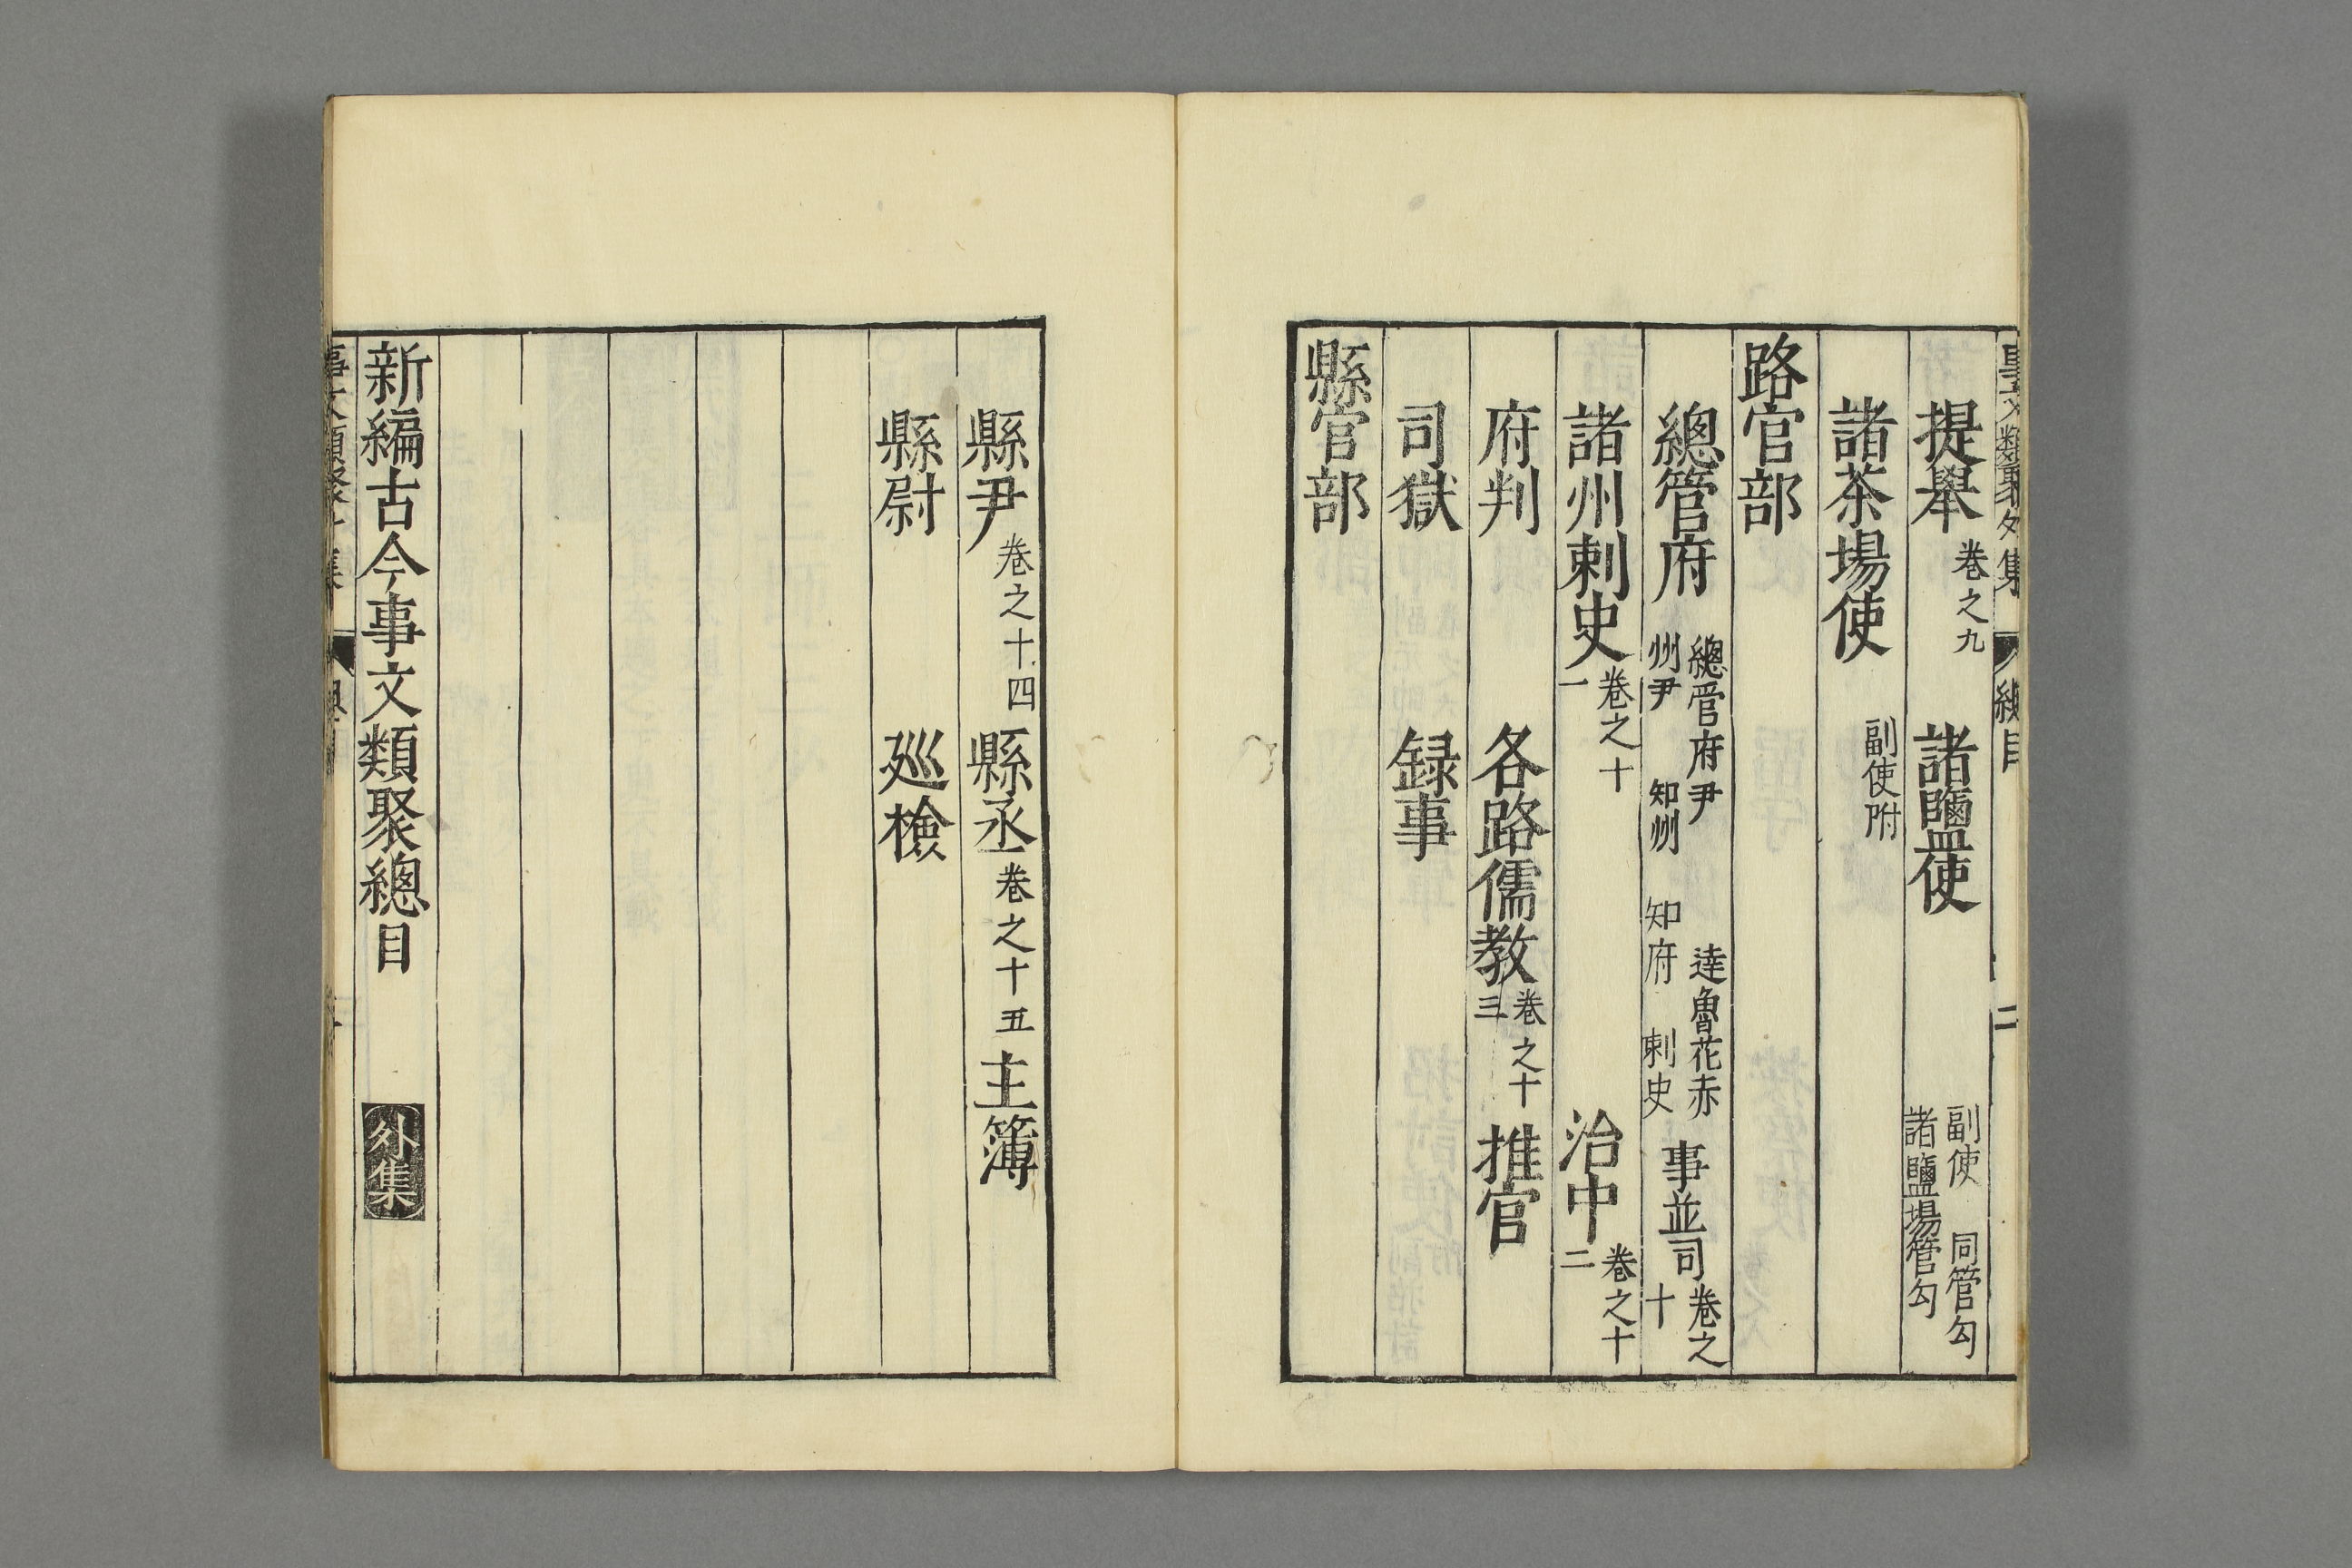 事文類聚外集 總目 二
提舉 卷之九 諸鹽使 副使 同管勾 諸鹽場管勾
諸茶場使 副使附
路官部
總管府 總管府尹 達魯花赤 州尹 知州 知府 刺史 事並司 卷之十
諸州刺史 卷之十一 治中 卷之十二
府判 各路儒教 卷之十三 推官
司獄 録事
縣官部
縣尹 卷之十四 縣丞 卷之十五 主簿
縣尉 廵檢
新編古今事文類聚總目 外集